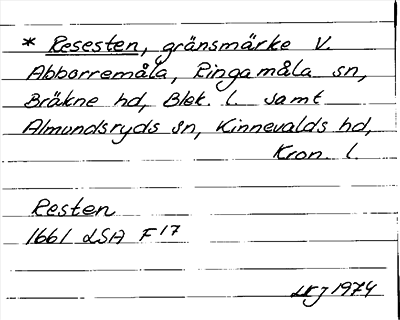 * Resesten, gränsmärke V.
Abborremåla, Ringamåla sn,
Bräkne hd, Blek. l. samt
Almundsryds sn, Kinnevalds hd,
Kron. l.
Resten
1661 LSA F 17
1974